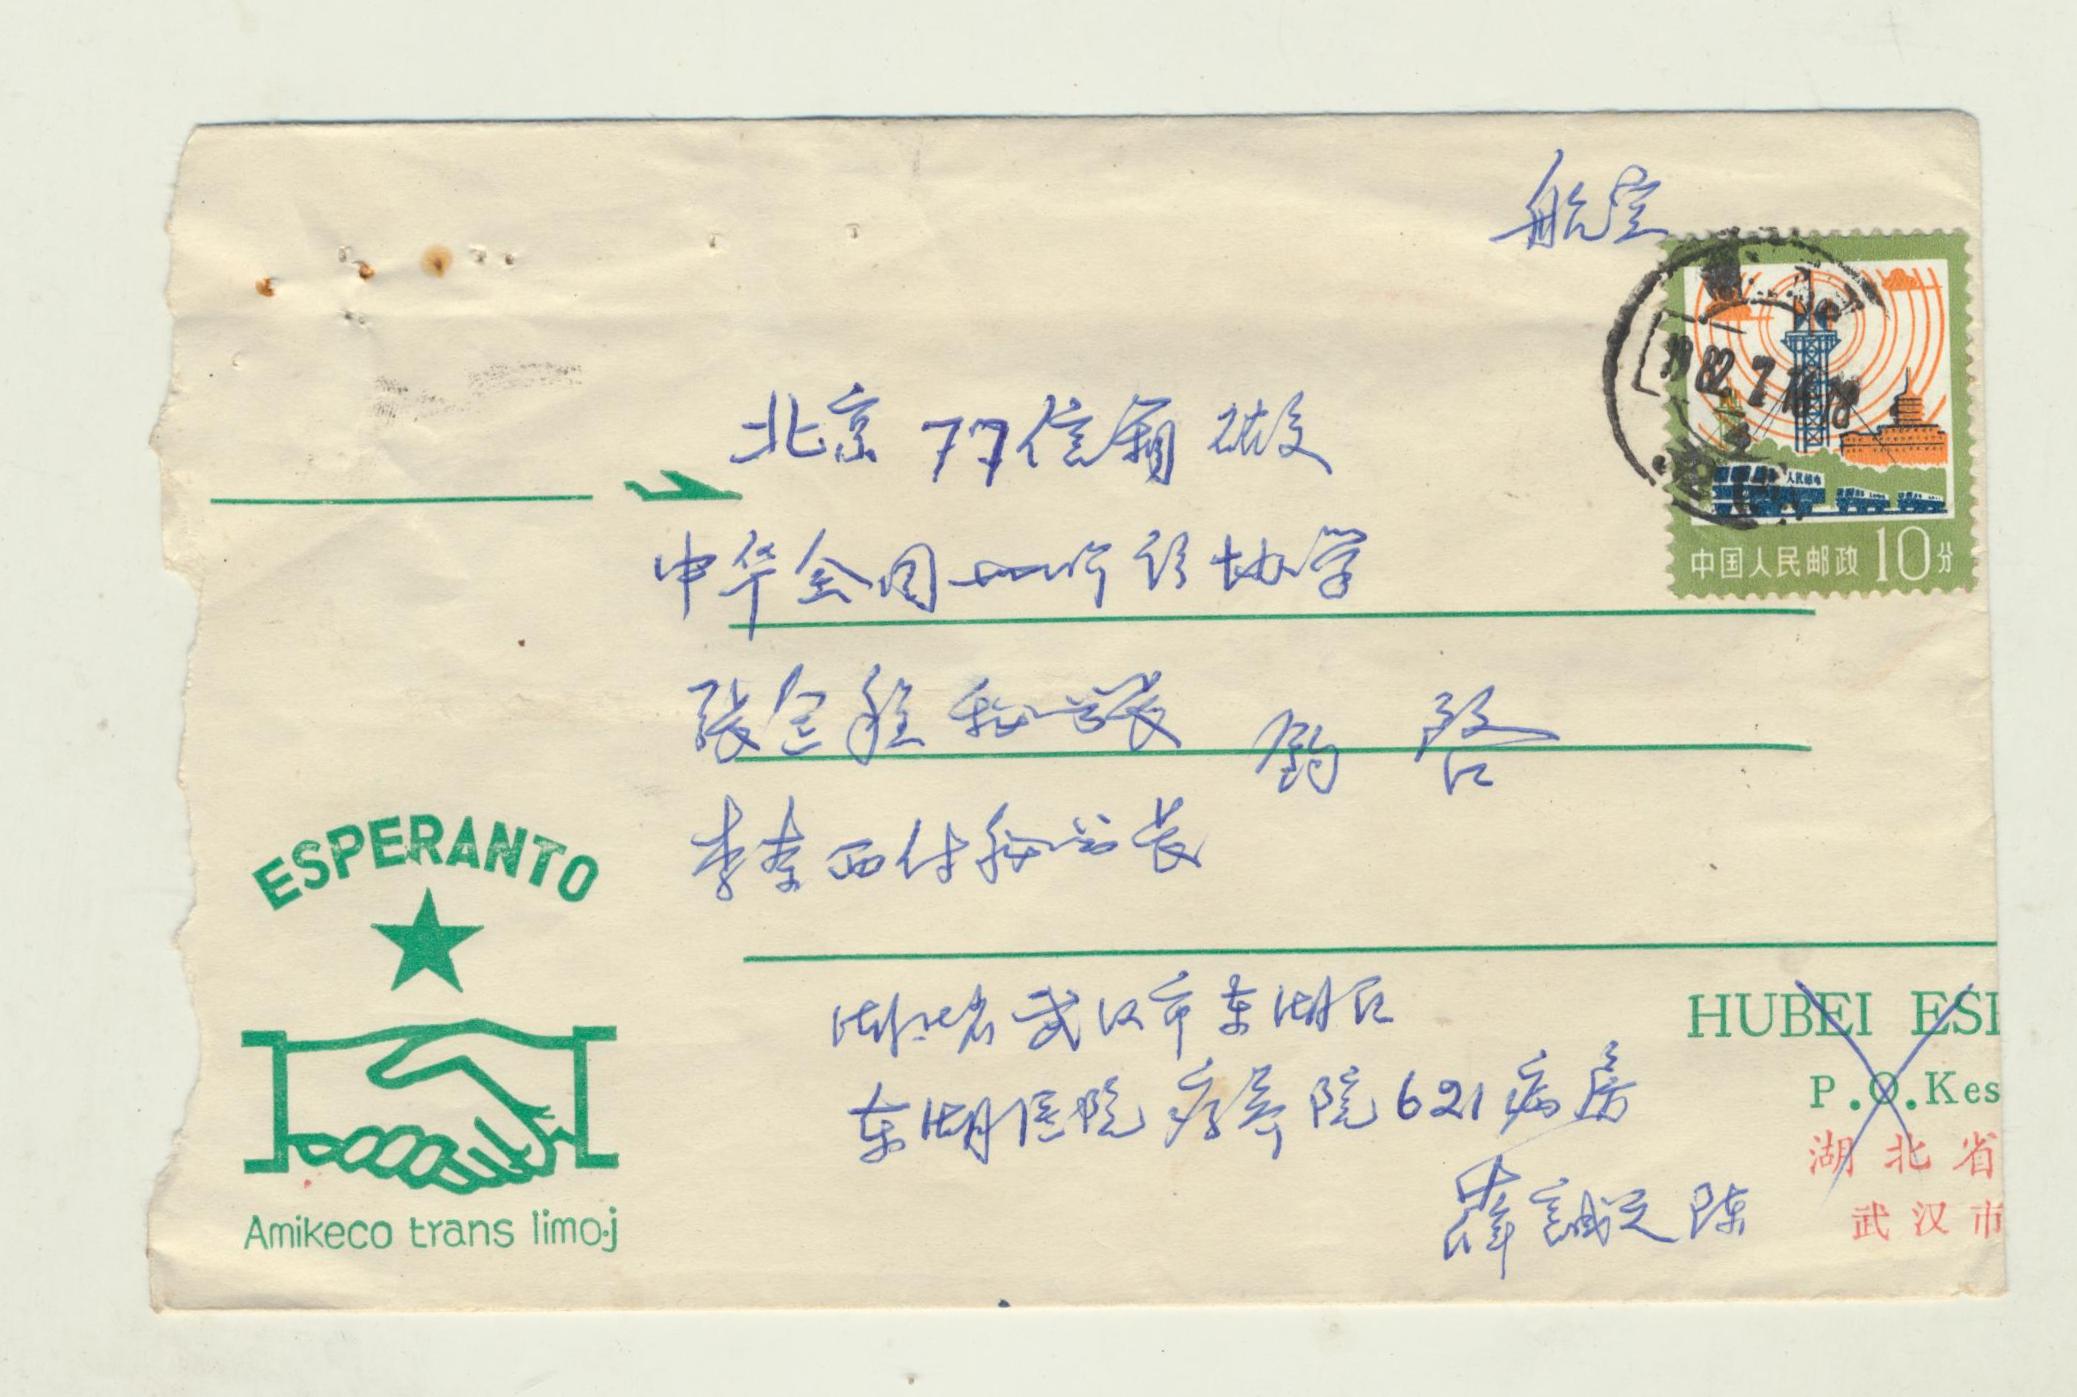 航空
1982.7.16.18
人民邮电
中国人民邮政 10分
北京 77信箱
中华全国世界语协会
张企程秘书长 钧 启
李奈西付秘书长
ESPERANTO
Amikeco trans limoj
湖北省武汉市东湖区
东湖医院疗养院621病房
薛诚之
HUBEI ESP
P.O.Kes
湖北省
武汉市